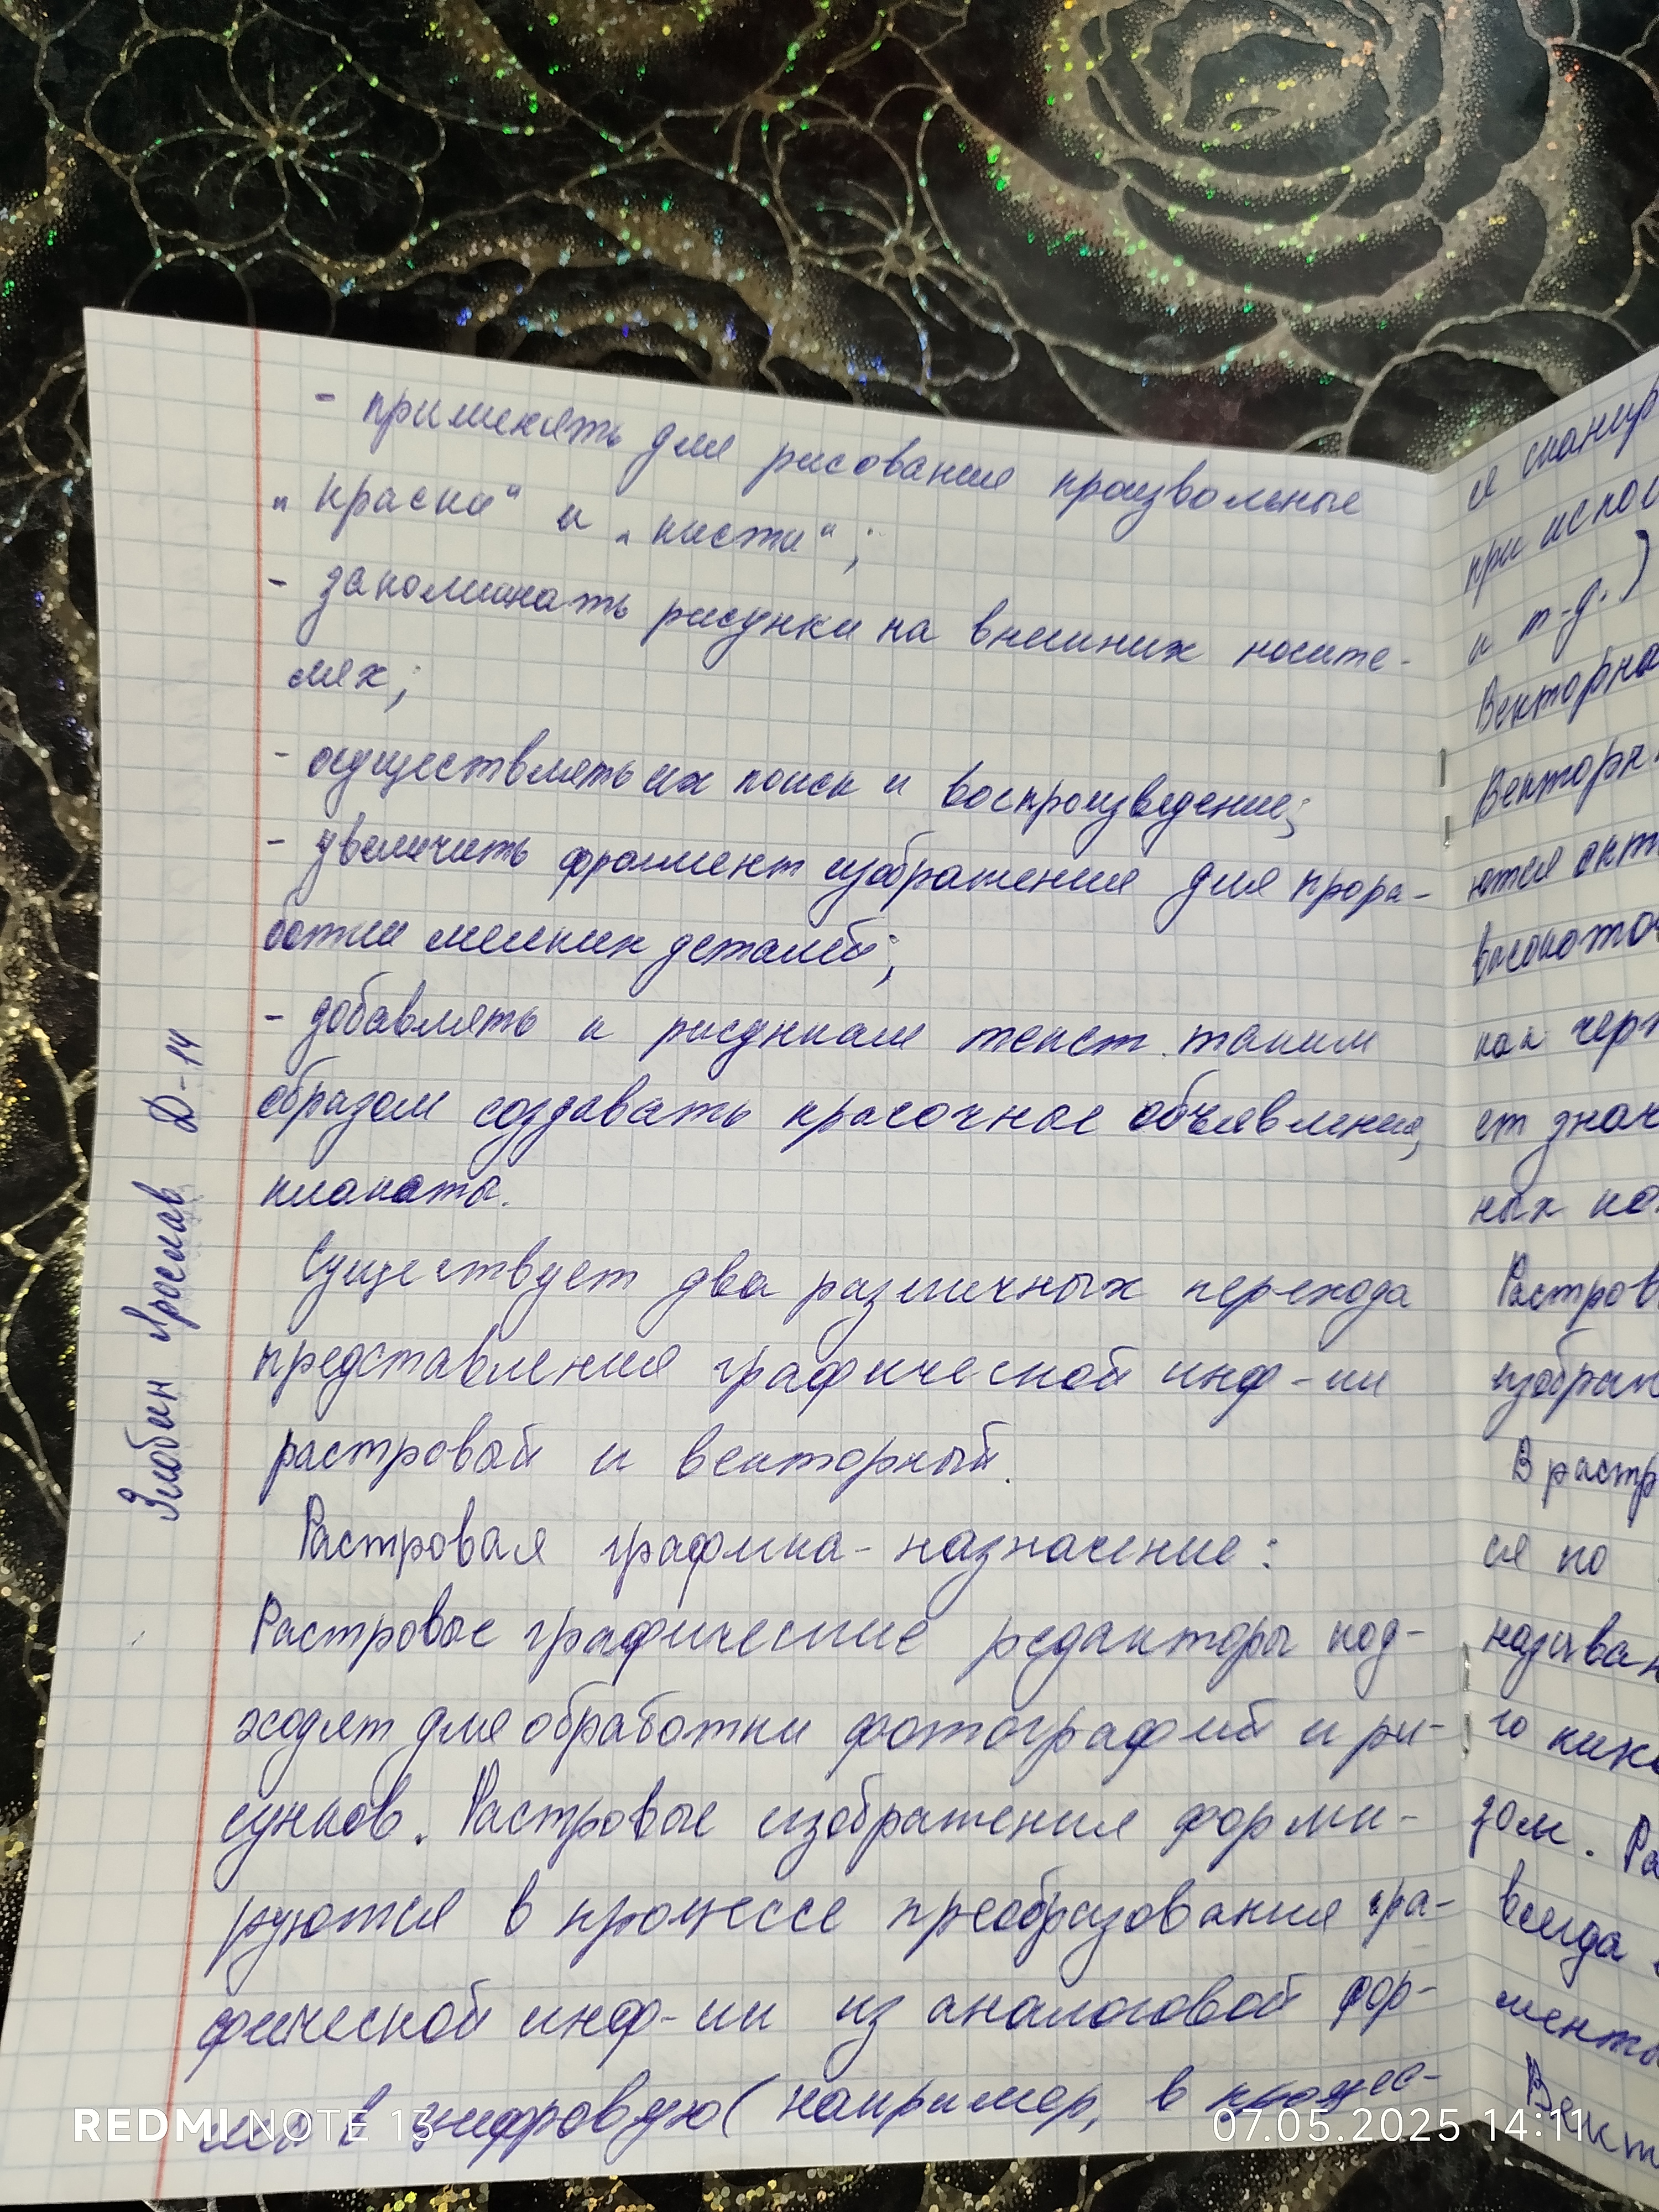 - применять для рисования произвольные
„краски“ и „кисти“;
- запоминать рисунки на внешних носите-
лях;
- осуществлять их поиск и воспроизведение;
- увеличить фрагмент изображения для прора-
ботки мелких деталей;
- добавлять к рисункам текст таким
образом создавать красочные объявления,
плакаты.
Существует два различных перехода
представления графической инф-ии
растровый и векторный.
Растровая графика - назначение:
Растровые графические редакторы под-
ходят для обработки фотографий и ри-
сунков. Растровые изображения форми-
руются в процессе преобразования гра-
фической инф-ии из аналоговой фор-
мы в цифровую (например, в процес-
Злобин Ярослав Д-14
я сканир
при испол
и т-д.)
Векторна
Векторн
ются опт
высокоточ
как черт
ет знач
ных ко
Растров
изображ
В растр
ся по
называ
го пикс
зом. Ра
всегда
мента
Вект
REDMI NOTE 13
07.05.2025 14:11